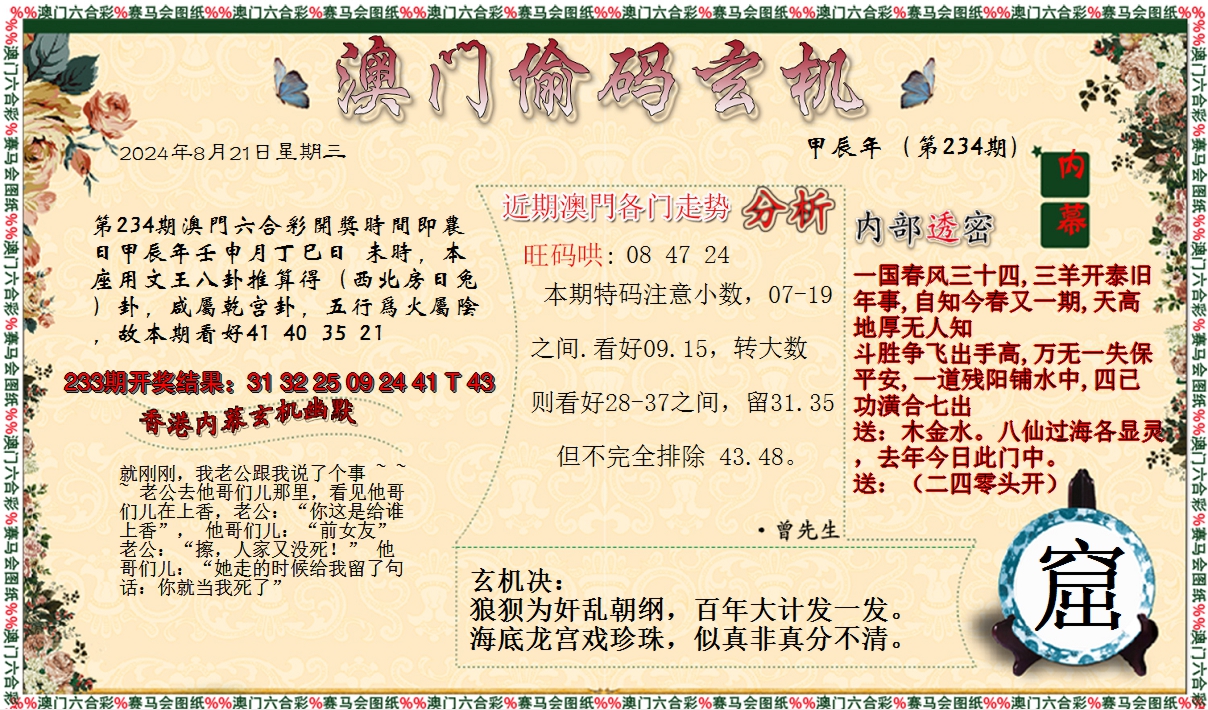 %%澳门六合彩%赛马会图纸%%澳门六合彩%赛马会图纸%%澳门六合彩%赛马会图纸%%澳门六合彩%赛马会图纸%%澳门六合彩%赛马会图纸%%澳门六合彩%赛马会图纸%%澳门六合彩%赛马会图纸%%
澳门偷码玄机
2024年8月21日星期三
甲辰年（第234期）
内
幕
第234期澳門六合彩開獎時間即農
日甲辰年壬申月丁巳日 未時，本
座用文王八卦推算得（西北房日兔
）卦，咸屬乾宫卦，五行爲火屬陰
，故本期看好41 40 35 21
233期开奖结果：31 32 25 09 24 41 T 43
香港内幕玄机幽默
就刚刚，我老公跟我说了个事 ~ ~
~ 老公去他哥们儿那里，看见他哥
们儿在上香，老公：“你这是给谁
上香”， 他哥们儿：“前女友”
老公：“擦，人家又没死！” 他
哥们儿：“她走的时候给我留了句
话：你就当我死了”
近期澳門各门走势 分析
旺码哄: 08 47 24
本期特码注意小数，07-19
之间.看好09.15，转大数
则看好28-37之间，留31.35
但不完全排除 43.48。
·曾先生
内部透密
一国春风三十四,三羊开泰旧
年事,自知今春又一期,天高
地厚无人知
斗胜争飞出手高,万无一失保
平安,一道残阳铺水中,四已
功潢合七出
送：木金水。八仙过海各显灵
，去年今日此门中。
送：（二四零头开）
玄机决：
狼狈为奸乱朝纲，百年大计发一发。
海底龙宫戏珍珠，似真非真分不清。
窟
%%澳门六合彩%赛马会图纸%%澳门六合彩%赛马会图纸%%澳门六合彩%赛马会图纸%%澳门六合彩%赛马会图纸%%澳门六合彩%赛马会图纸%%澳门六合彩%赛马会图纸%%澳门六合彩%赛马会图纸%%